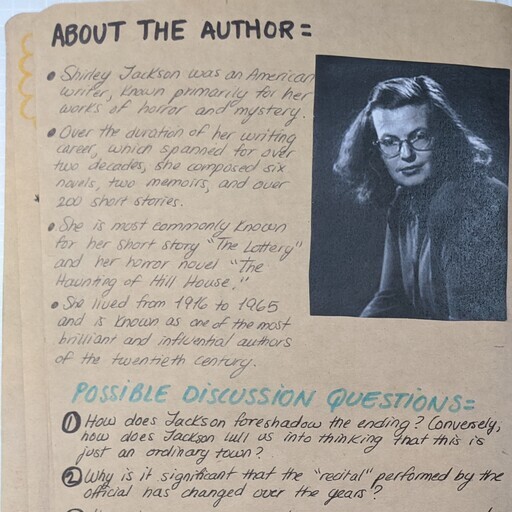 ABOUT THE AUTHOR =
• Shirley Jackson was an American
writer, known primarily for her
works of horror and mystery.
• Over the duration of her writing
career, which spanned for over
two decades, she composed six
novels, two memoirs, and over
200 short stories.
• She is most commonly known
for her short story "The Lottery"
and her horror novel "The
Haunting of Hill House."
• She lived from 1916 to 1965
and is known as one of the most
brilliant and influential authors
of the twentieth century.
POSSIBLE DISCUSSION QUESTIONS=
1 How does Jackson foreshadow the ending? Conversely,
how does Jackson lull us into thinking that this is
just an ordinary town?
2 Why is it significant that the "recital" performed by the
official has changed over the years?